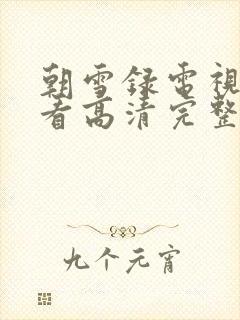 朝雪録電視
看高清完整
九个元宵